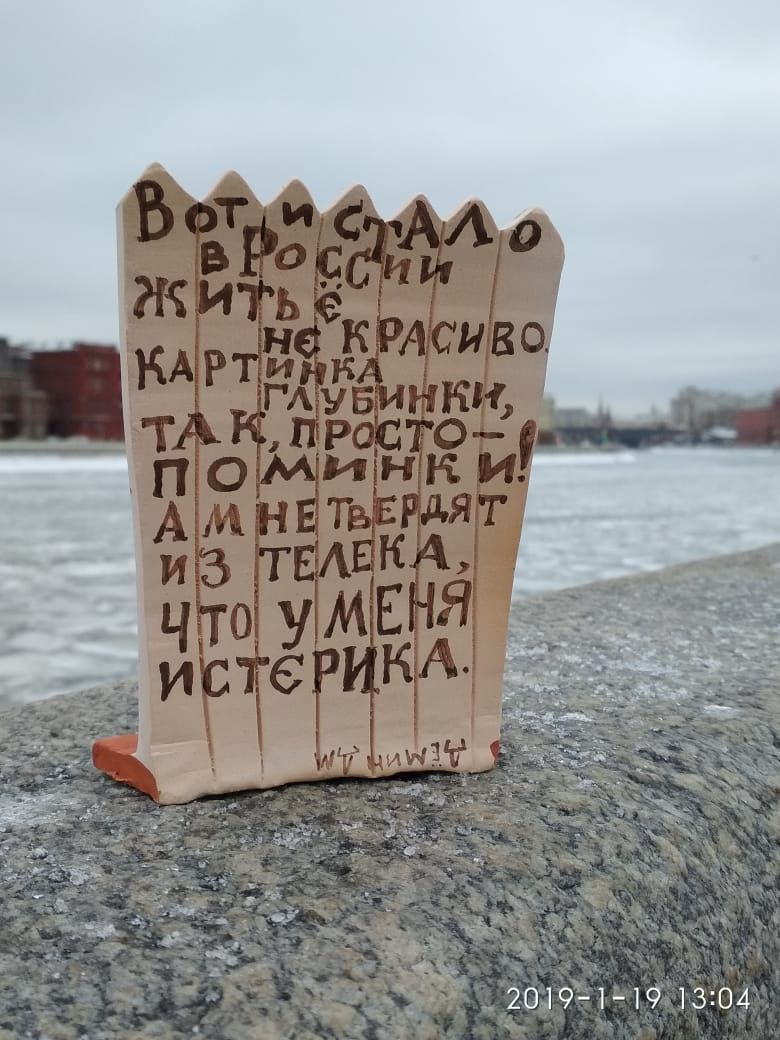 Вот и стало
в России
житьё
не красиво.
картинка
глубинки,
так, просто —
поминки!
А мне твердят
из телека,
что у меня
истерика.
2019-1-19 13:04